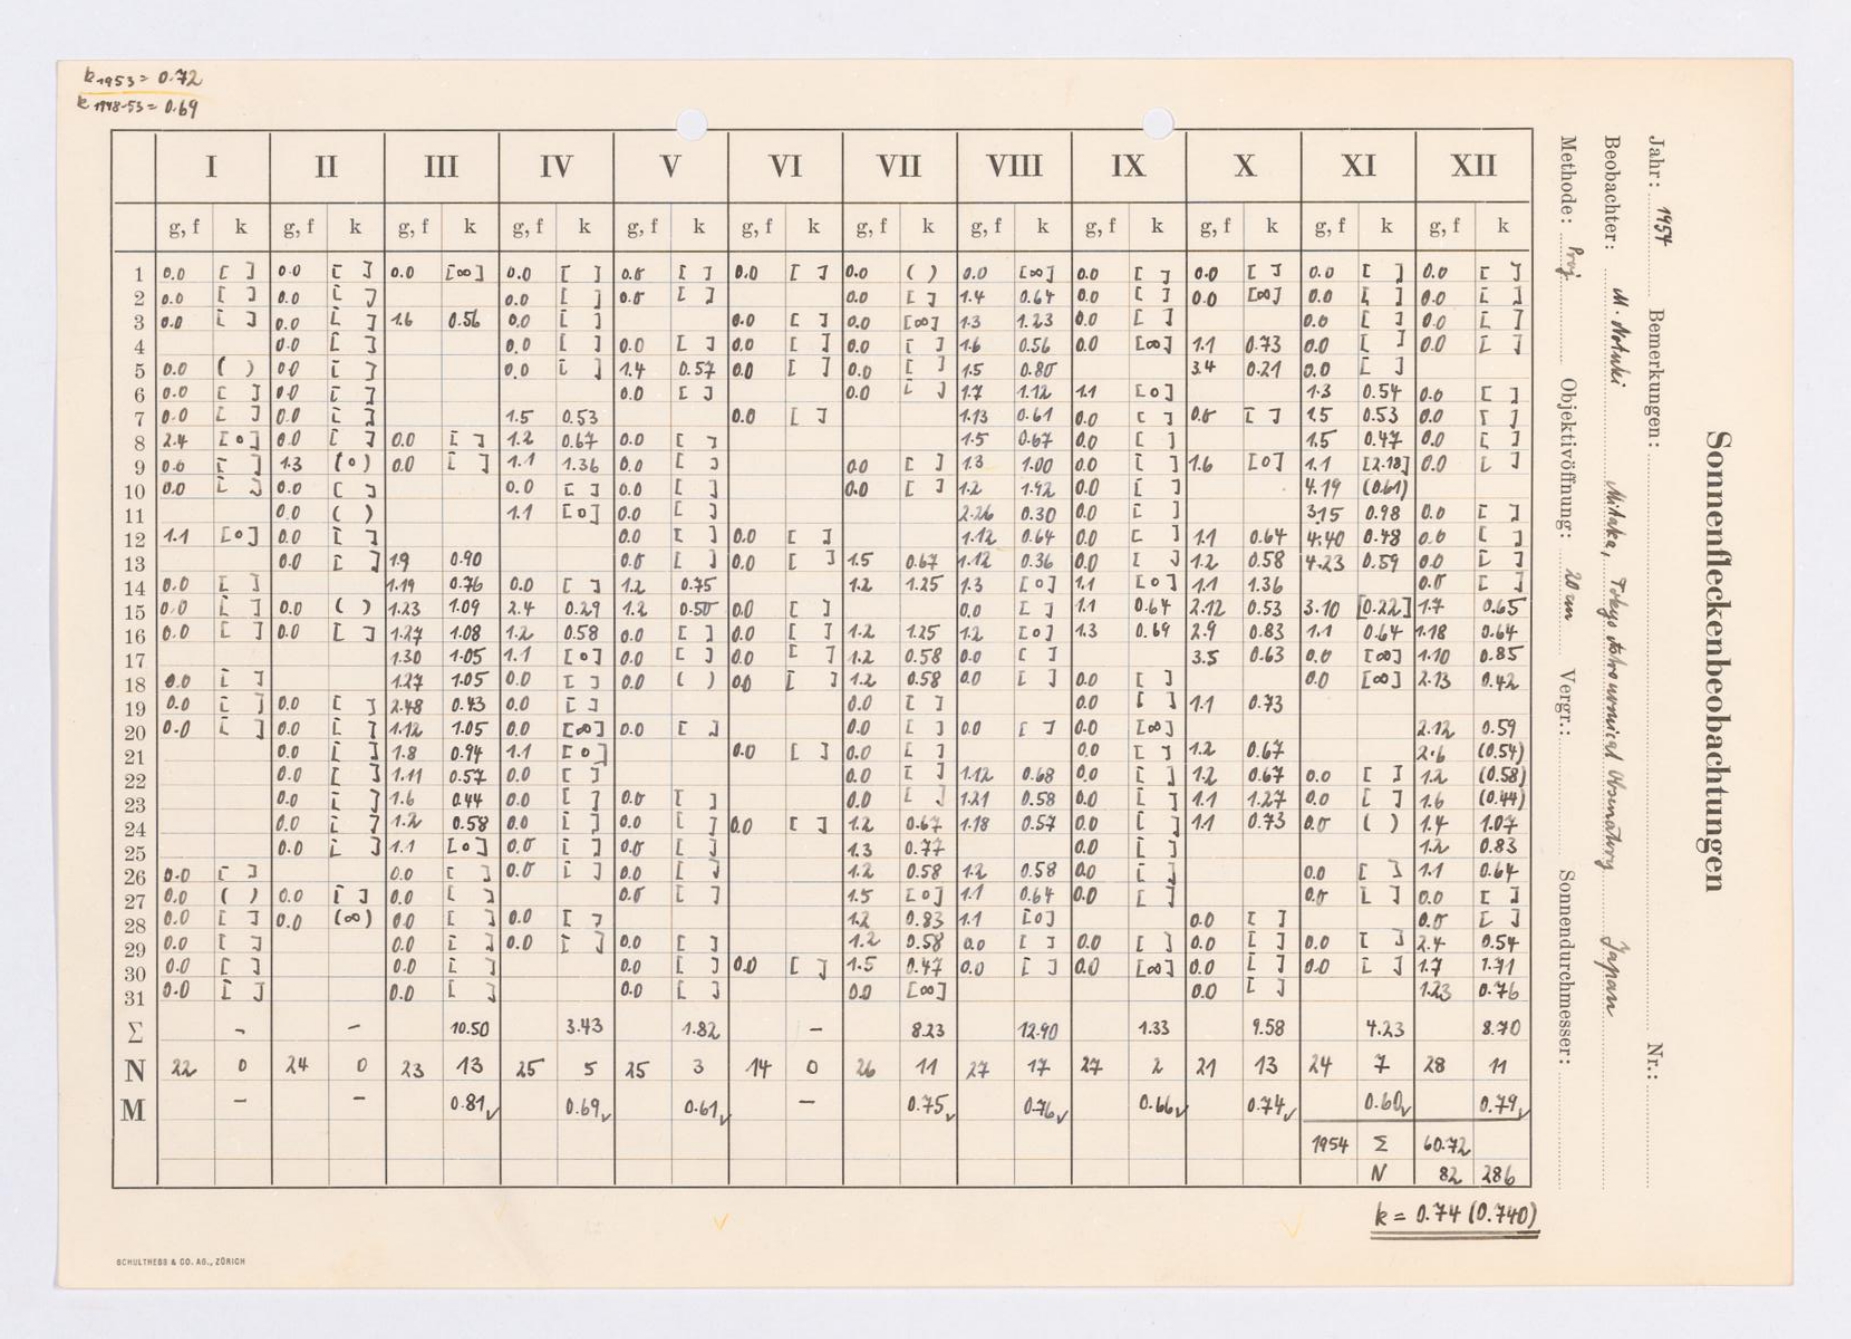 k 1953 = 0.72
k 1948-53 = 0.69
Sonnenfleckenbeobachtungen
Jahr: 1954 Bemerkungen: Nr.:
Beobachter: M. Notuki Mitaka, Tokyo Astronomical Observatory Japan
Methode: Proj. Objektivöffnung: 20 cm Vergr.: Sonnendurchmesser:
I II III IV V VI VII VIII IX X XI XII
g, f k g, f k g, f k g, f k g, f k g, f k g, f k g, f k g, f k g, f k g, f k g, f k
1 0.0 [ ] 0.0 [ ] 0.0 [∞] 0.0 [ ] 0.0 [ ] 0.0 [ ] 0.0 ( ) 0.0 [∞] 0.0 [ ] 0.0 [ ] 0.0 [ ] 0.0 [ ]
2 0.0 [ ] 0.0 [ ] 0.0 [ ] 0.0 [ ] 0.0 [ ] 1.4 0.64 0.0 [ ] 0.0 [∞] 0.0 [ ] 0.0 [ ]
3 0.0 [ ] 0.0 [ ] 1.6 0.56 0.0 [ ] 0.0 [ ] 0.0 [∞] 1.3 1.23 0.0 [ ] 0.0 [ ] 0.0 [ ]
4 0.0 [ ] 0.0 [ ] 0.0 [ ] 0.0 [ ] 0.0 [ ] 1.6 0.56 0.0 [∞] 1.1 0.73 0.0 [ ] 0.0 [ ]
5 0.0 ( ) 0.0 [ ] 0.0 [ ] 1.4 0.57 0.0 [ ] 0.0 [ ] 1.5 0.80 3.4 0.21 0.0 [ ]
6 0.0 [ ] 0.0 [ ] 0.0 [ ] 0.0 [ ] 1.7 1.12 1.1 [0] 1.3 0.54 0.0 [ ]
7 0.0 [ ] 0.0 [ ] 1.5 0.53 0.0 [ ] 1.13 0.61 0.0 [ ] 0.0 [ ] 1.5 0.53 0.0 [ ]
8 2.4 [0] 0.0 [ ] 0.0 [ ] 1.2 0.67 0.0 [ ] 1.5 0.67 0.0 [ ] 1.5 0.47 0.0 [ ]
9 0.0 [ ] 1.3 (0) 0.0 [ ] 1.1 1.36 0.0 [ ] 0.0 [ ] 1.3 1.00 0.0 [ ] 1.6 [0] 1.1 [2.18] 0.0 [ ]
10 0.0 [ ] 0.0 [ ] 0.0 [ ] 0.0 [ ] 0.0 [ ] 1.2 1.92 0.0 [ ] 4.19 (0.61)
11 0.0 ( ) 1.1 [0] 0.0 [ ] 2.26 0.30 0.0 [ ] 3.15 0.98 0.0 [ ]
12 1.1 [0] 0.0 [ ] 0.0 [ ] 0.0 [ ] 1.12 0.64 0.0 [ ] 1.1 0.64 4.40 0.48 0.0 [ ]
13 0.0 [ ] 1.9 0.90 0.0 [ ] 0.0 [ ] 1.5 0.67 1.12 0.36 0.0 [ ] 1.2 0.58 4.23 0.59 0.0 [ ]
14 0.0 [ ] 1.19 0.76 0.0 [ ] 1.2 0.75 1.2 1.25 1.3 [0] 1.1 [0] 1.1 1.36 0.0 [ ]
15 0.0 [ ] 0.0 ( ) 1.23 1.09 2.4 0.29 1.2 0.50 0.0 [ ] 0.0 [ ] 1.1 0.64 2.12 0.53 3.10 [0.22] 1.7 0.65
16 0.0 [ ] 0.0 [ ] 1.27 1.08 1.2 0.58 0.0 [ ] 0.0 [ ] 1.2 1.25 1.2 [0] 1.3 0.69 2.9 0.83 1.1 0.64 1.18 0.64
17 1.30 1.05 1.1 [0] 0.0 [ ] 0.0 [ ] 1.2 0.58 0.0 [ ] 3.5 0.63 0.0 [∞] 1.10 0.85
18 0.0 [ ] 1.27 1.05 0.0 [ ] 0.0 ( ) 0.0 [ ] 1.2 0.58 0.0 [ ] 0.0 [ ] 0.0 [∞] 2.13 0.42
19 0.0 [ ] 0.0 [ ] 2.48 0.43 0.0 [ ] 0.0 [ ] 0.0 [ ] 1.1 0.73
20 0.0 [ ] 0.0 [ ] 1.12 1.05 0.0 [∞] 0.0 [ ] 0.0 [ ] 0.0 [ ] 0.0 [∞] 2.12 0.59
21 0.0 [ ] 1.8 0.94 1.1 [0] 0.0 [ ] 0.0 [ ] 0.0 [ ] 1.2 0.67 2.6 (0.54)
22 0.0 [ ] 1.11 0.57 0.0 [ ] 0.0 [ ] 1.12 0.68 0.0 [ ] 1.2 0.67 0.0 [ ] 1.2 (0.58)
23 0.0 [ ] 1.6 0.44 0.0 [ ] 0.0 [ ] 0.0 [ ] 1.21 0.58 0.0 [ ] 1.1 1.27 0.0 [ ] 1.6 (0.44)
24 0.0 [ ] 1.2 0.58 0.0 [ ] 0.0 [ ] 0.0 [ ] 1.2 0.67 1.18 0.57 0.0 [ ] 1.1 0.73 0.0 ( ) 1.4 1.07
25 0.0 [ ] 1.1 [0] 0.0 [ ] 0.0 [ ] 1.3 0.77 0.0 [ ] 1.2 0.83
26 0.0 [ ] 0.0 [ ] 0.0 [ ] 0.0 [ ] 1.2 0.58 1.2 0.58 0.0 [ ] 0.0 [ ] 1.1 0.64
27 0.0 ( ) 0.0 [ ] 0.0 [ ] 0.0 [ ] 1.5 [0] 1.1 0.64 0.0 [ ] 0.0 [ ] 0.0 [ ]
28 0.0 [ ] 0.0 (∞) 0.0 [ ] 0.0 [ ] 1.2 0.83 1.1 [0] 0.0 [ ] 0.0 [ ]
29 0.0 [ ] 0.0 [ ] 0.0 [ ] 0.0 [ ] 1.2 0.58 0.0 [ ] 0.0 [ ] 0.0 [ ] 0.0 [ ] 2.4 0.54
30 0.0 [ ] 0.0 [ ] 0.0 [ ] 0.0 [ ] 1.5 0.47 0.0 [ ] 0.0 [∞] 0.0 [ ] 0.0 [ ] 1.7 1.71
31 0.0 [ ] 0.0 [ ] 0.0 [ ] 0.0 [∞] 0.0 [ ] 1.23 0.76
Σ – – 10.50 3.43 1.82 – 8.23 12.90 1.33 9.58 4.23 8.70
N 22 0 24 0 23 13 25 5 25 3 14 0 26 11 27 17 27 2 21 13 24 7 28 11
M – – 0.81✓ 0.69✓ 0.61✓ – 0.75✓ 0.76✓ 0.66✓ 0.74✓ 0.60✓ 0.79✓
1954 Σ 60.72
N 82 286
k = 0.74 (0.740)
SCHULTHESS & CO. AG., ZÜRICH